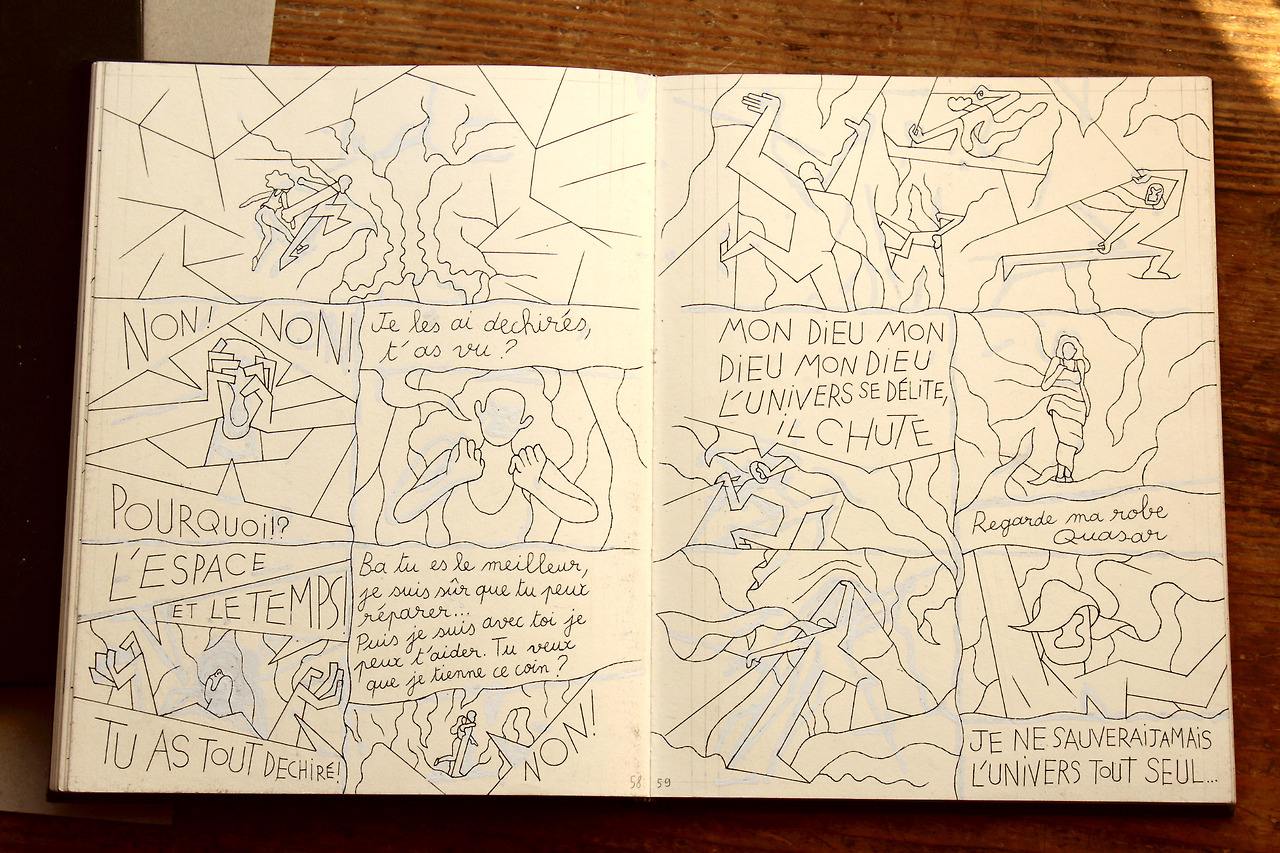 NON! NON!
POURQUOI!?
Je les ai dechirés,
t'as vu ?
L'ESPACE
ET LE TEMPS!
TU AS TOUT DECHIRÉ!
Ba tu es le meilleur,
je suis sûr que tu peux
réparer...
Puis je suis avec toi je
peux t'aider. Tu veux
que je tienne ce coin ?
NON!
58
59
MON DIEU MON
DIEU MON DIEU
L'UNIVERS SE DÉLITE,
IL CHUTE
Regarde ma robe
Quasar
JE NE SAUVERAI JAMAIS
L'UNIVERS TOUT SEUL...